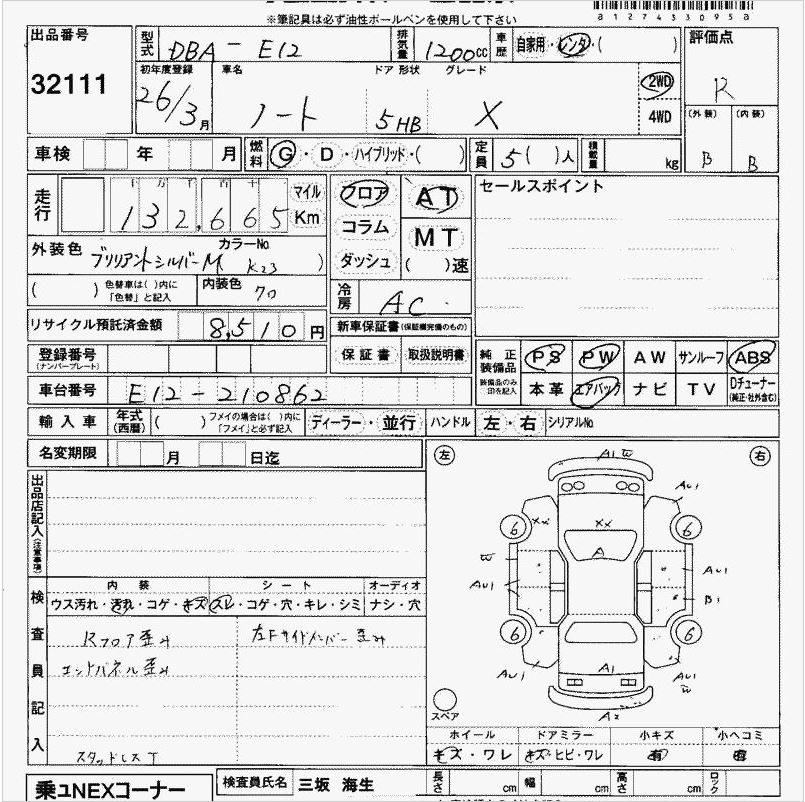 ※筆記具は必ず油性ボールペンを使用して下さい
a127433095a
出品番号 32111
型式 DBA - E12 排気量 1200cc 車歴 自家用・レンタ・( ) 評価点 R
初年度登録 26/3月 車名 ノート ドア 形状 5HB グレード X 2WD 4WD
(外装) B (内装) B
車検 年 月 燃料 G・D・ハイブリッド・( ) 定員 5( )人 積載量 kg
走行 十万千百十 132,665 マイル Km フロア コラム ダッシュ AT MT ( )速 セールスポイント
外装色 ブリリアントシルバーM カラーNo K23 )
( ) 色替車は( )内に「色替」と記入 内装色 70 冷房 AC
リサイクル預託済金額 8,510円 新車保証書(保証欄完備のもの)
登録番号 (ナンバープレート) 保証書 取扱説明書 純正装備品 PS PW AW サンルーフ ABS
車台番号 E12-210862 装備品のみ○印を記入 本革 エアバッグ ナビ TV Dチューナー (純正・社外含む)
輸入車 年式(西暦) ( ) フメイの場合は( )内に「フメイ」と必ず記入 ディーラー・並行 ハンドル 左・右 シリアルNo
名変期限 月 日迄
左 右
出品店記入(注意事項)
A1 W
AU1
XX XX
6 6
A
W
AU1 AU1
B1
6 6
AU1 A1 AU1
W
A2
スペア
検査員記入
内装 シート オーディオ
ウス汚れ・汚れ・コゲ・キズ スレ・コゲ・穴・キレ・シミ ナシ・穴
Rフロア歪み 左Fサイドメンバー歪み
エンドパネル歪み
スタッドレスT
ホイール ドアミラー 小キズ 小ヘコミ
キズ・ワレ キズ・ヒビ・ワレ 有 有
乗ユNEXコーナー 検査員氏名 三坂 海生 長さ cm 幅 cm 高さ cm ロック